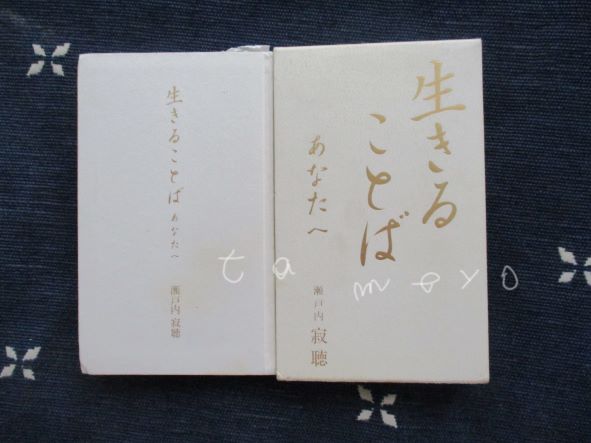 生きることば あなたへ
瀬戸内 寂聴
生きる
ことば
あなたへ
瀬戸内 寂聴
ta moyo